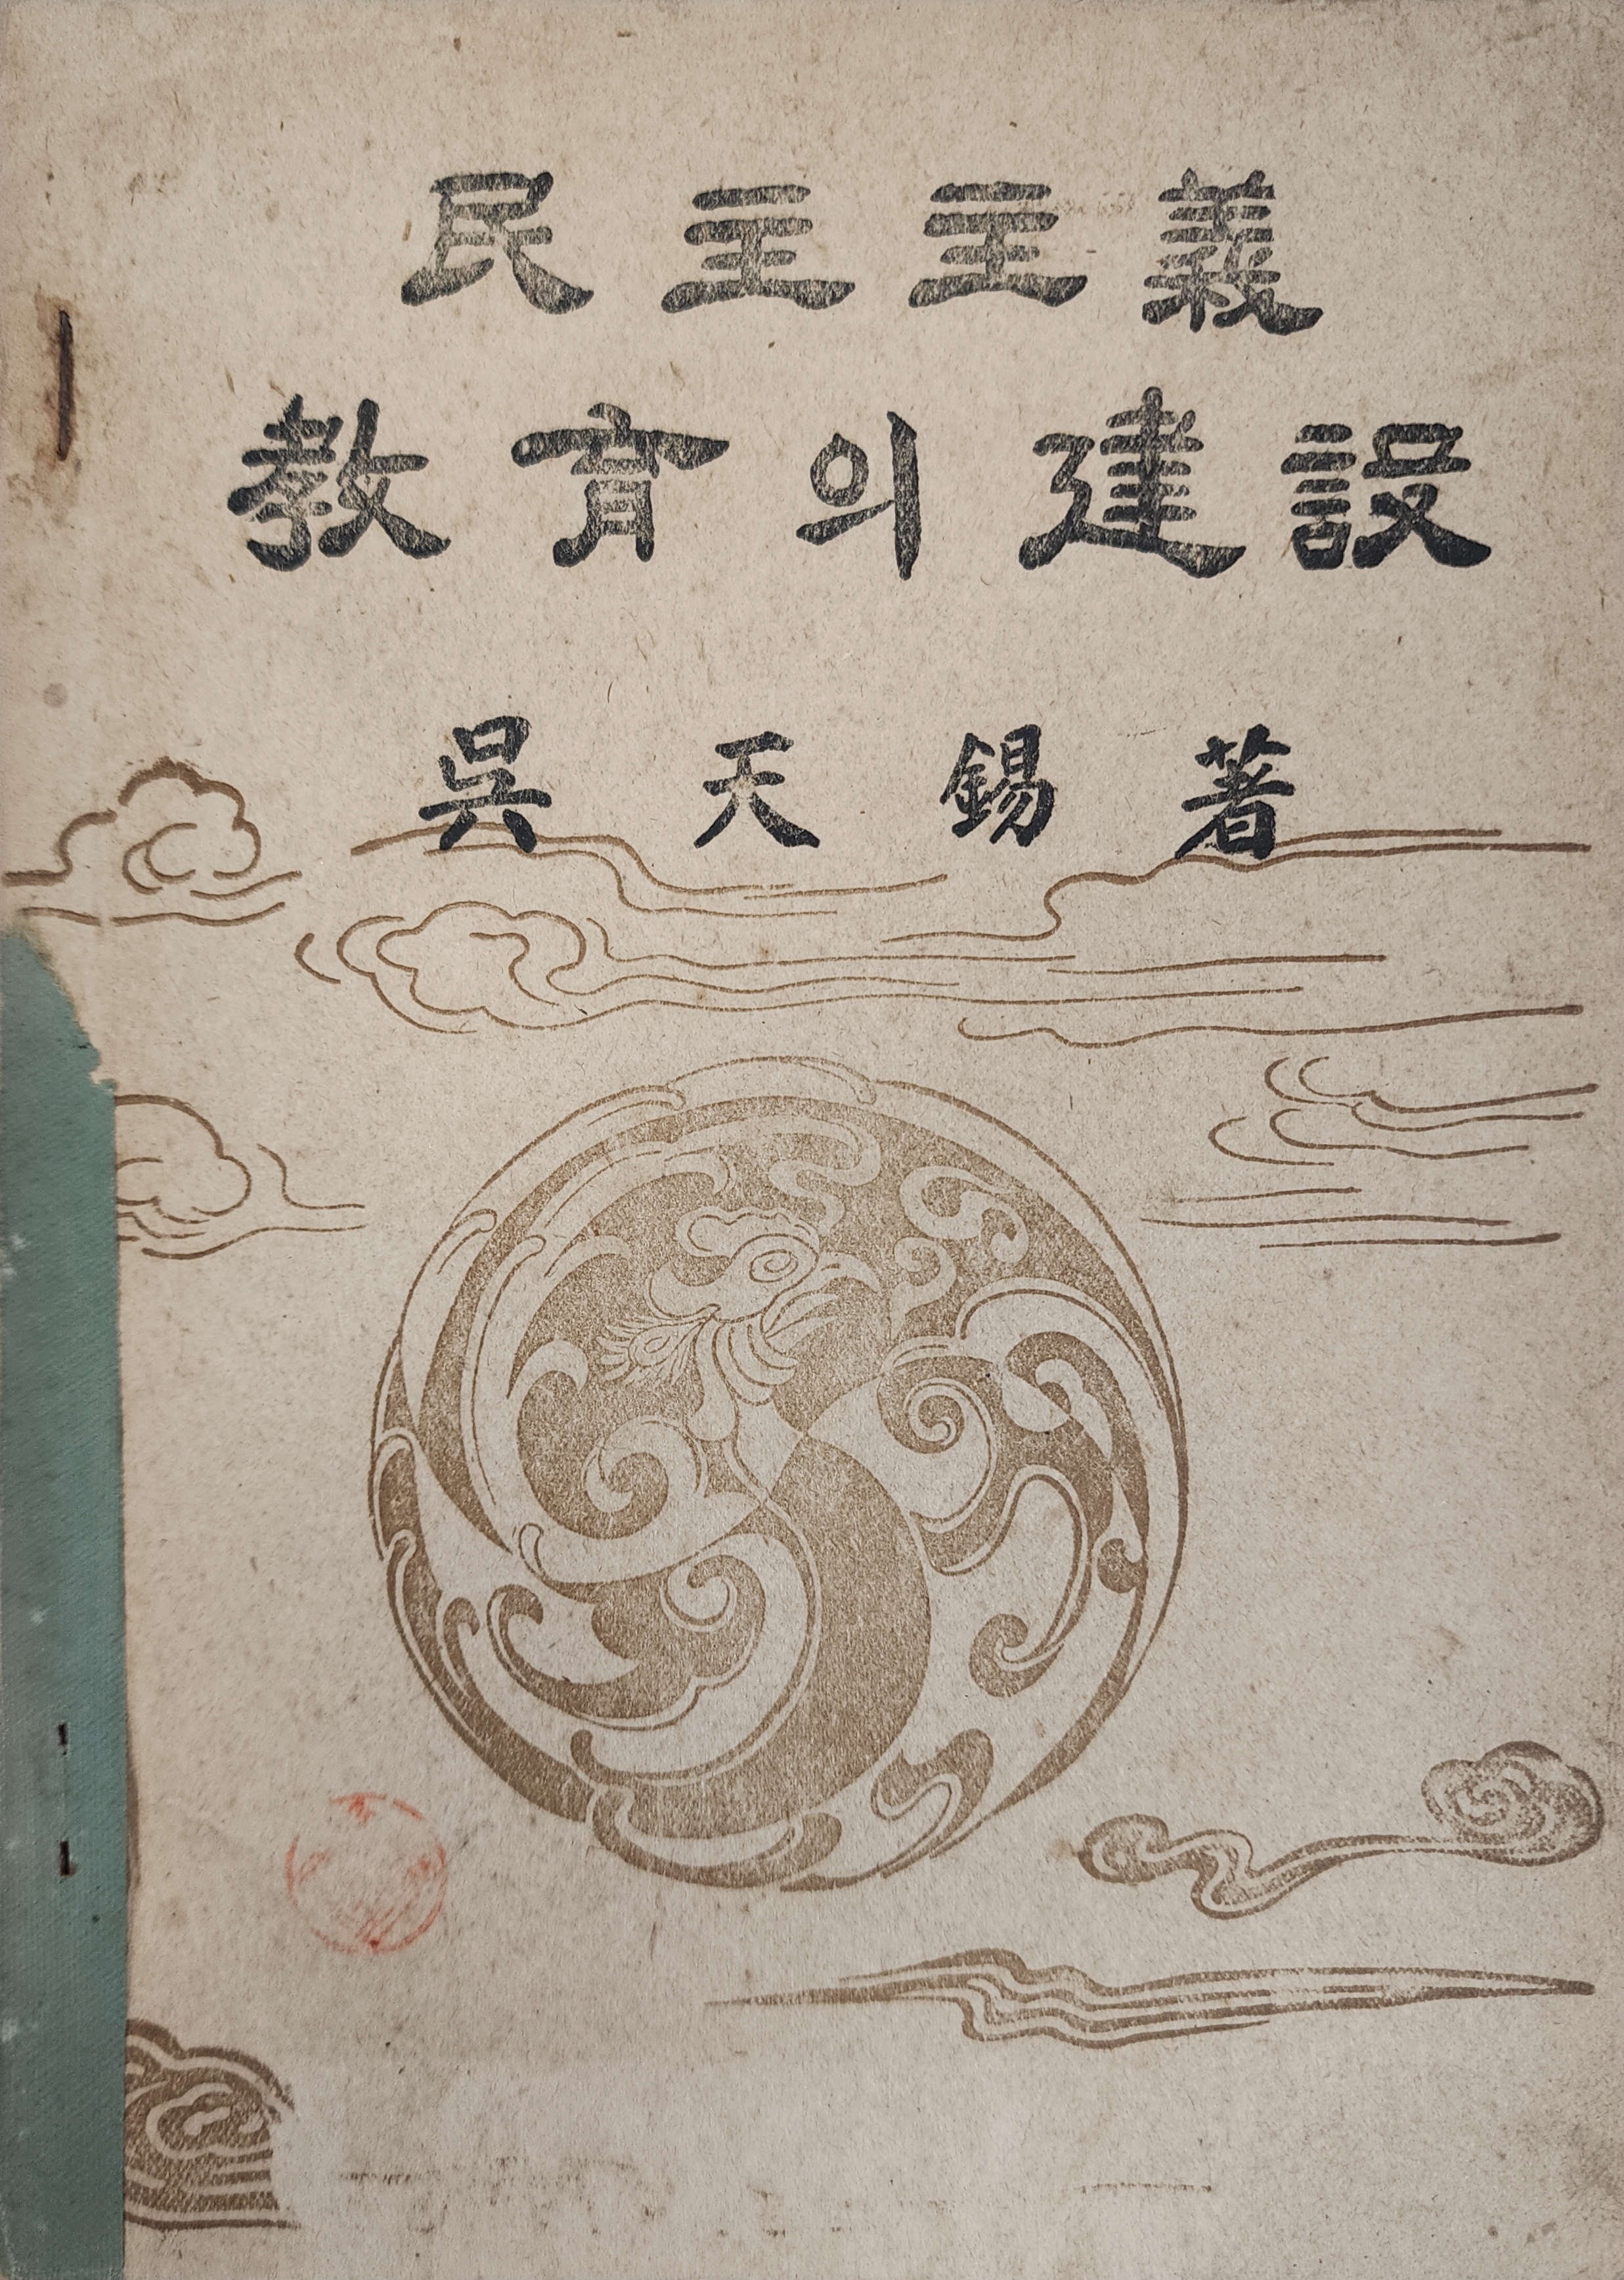 民主主義
敎育의建設
吳天錫著